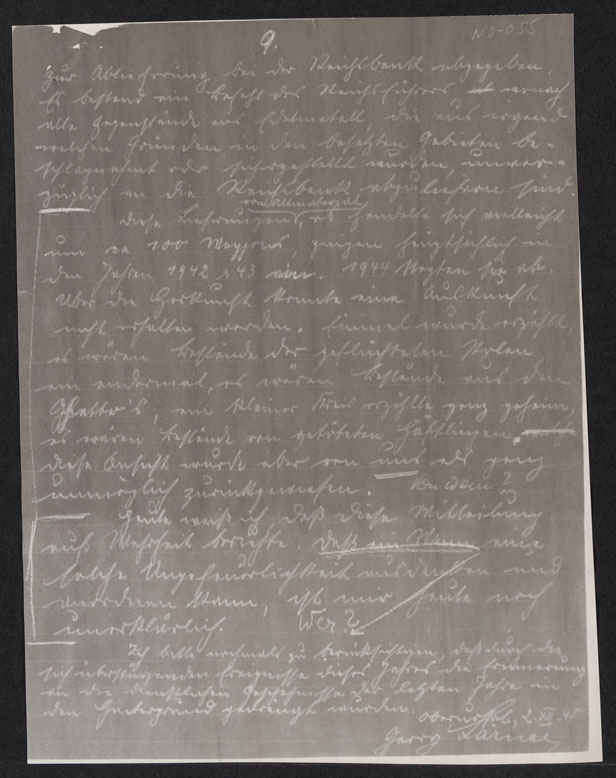 9.
NO-055
zur Ablieferung bei der Reichsbank abgegeben.
Es bestand ein Befehl des Reichsführers wonach
alle Gegenstände aus Edelmetall die aus irgend
welchen Gründen in den besetzten Gebieten be-
schlagnahmt oder sichergestellt wurden, unver-
züglich an die Reichsbank abzuliefern sind.
von Altmaterial
Diese Lieferungen, es handelte sich vielleicht
um ca 100 Waggons, gingen hauptsächlich in
den Jahren 1942 & 43 ein. 1944 ab.
Über die Herkunft konnte eine Auskunft
nicht erhalten werden. Einmal wurde erzählt,
es wären Bestände der geflüchteten Polen
ein andermal, es wären Bestände aus den
Ghetto's, ein kleiner Kreis erzählte ganz geheim,
es wären Bestände von getöteten Häftlingen.
diese Ansicht wurde aber von uns als ganz
unmöglich zurückgewiesen.
Heute weiß ich daß diese Mitteilung
auf Wahrheit beruhte. Daß ein Mann eine
solche Ungeheuerlichkeit ausdenken und
anordnen kann, ist mir heute noch
unerklärlich. Wer?
Ich bitte nochmals zu berücksichtigen, daß durch die
sich überstürzenden Ereignisse dieses Jahres die Erinnerung
an die dienstlichen Geschehnisse der letzten Jahre in
den Hintergrund gedrängt wurden.
Oberursel, 2. XII. 45
Georg Lörner